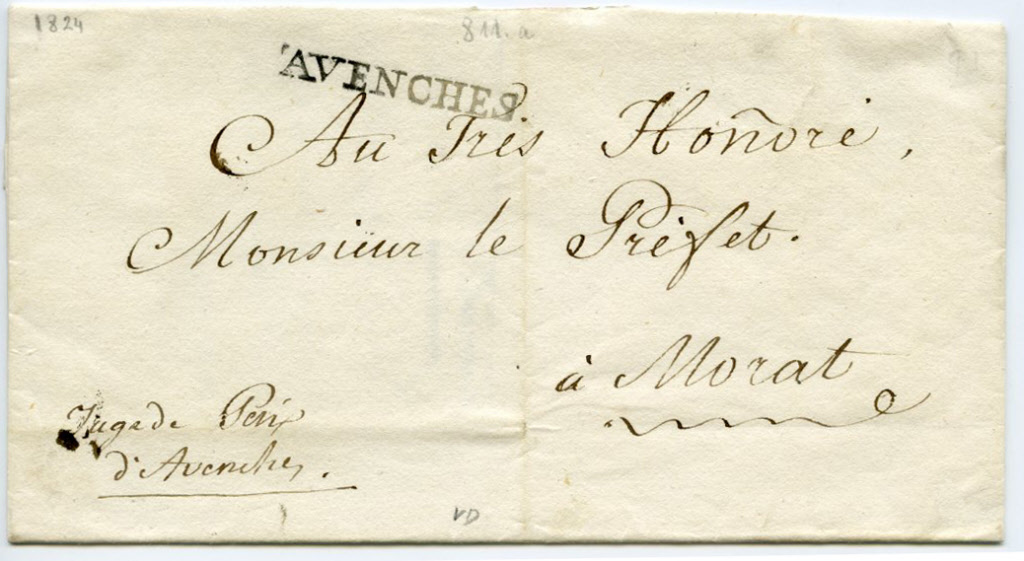 1824
811. a
AVENCHES
Au Très Honoré,
Monsieur le Préfet.
à Morat
Juge de Paix
d'Avenches.
VD